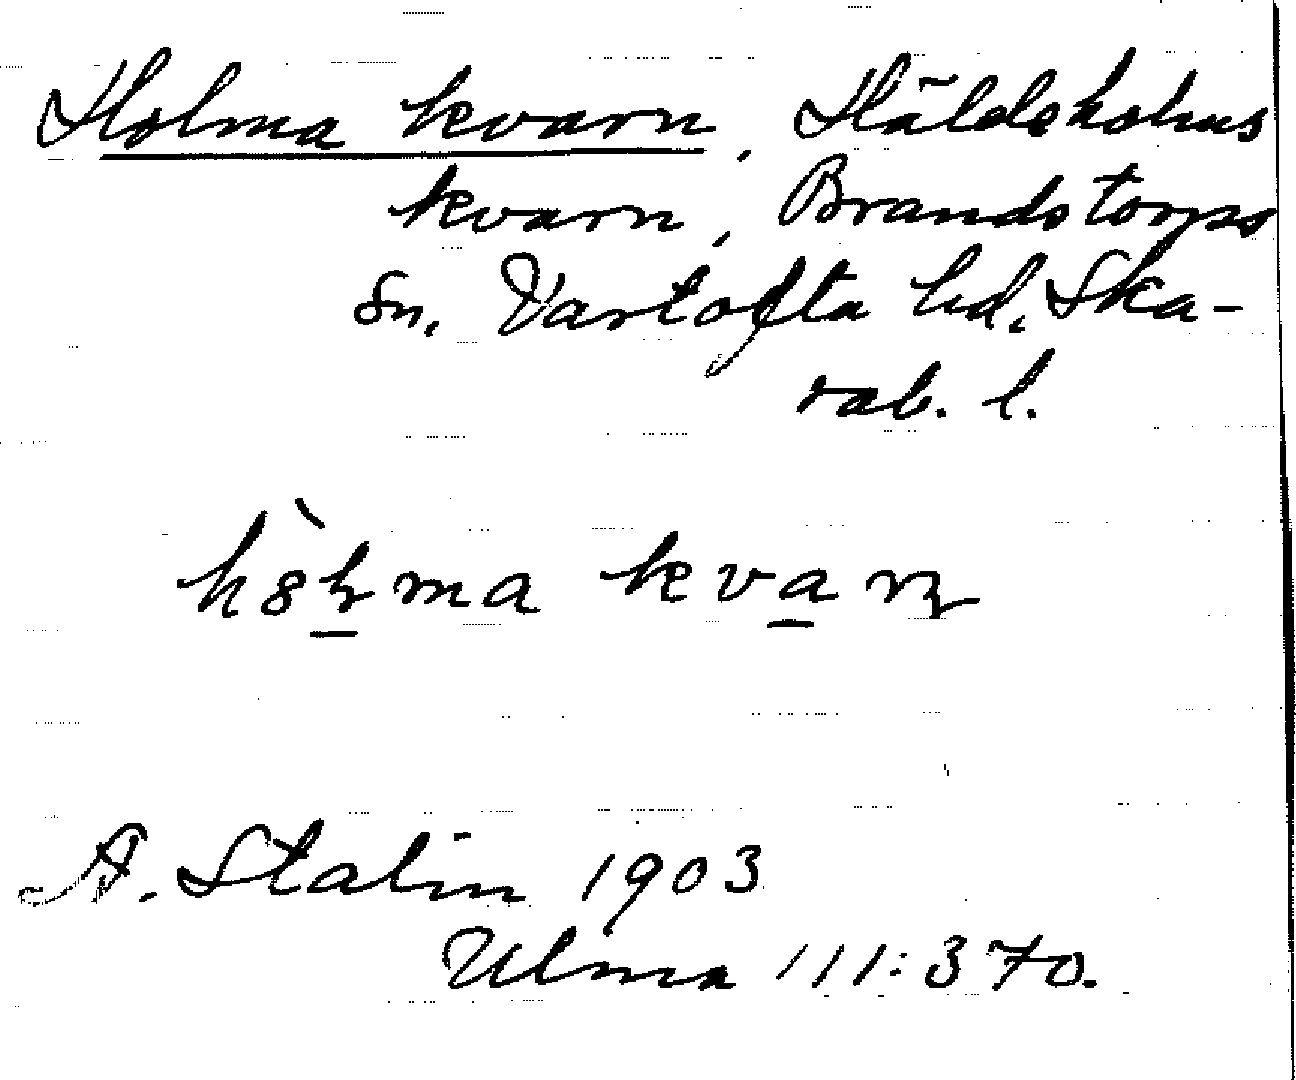 Holma kvarn, Häldeholms
kvarn, Brandstorps
sn, Vartofta hd, Ska-
rab. l.
A. Stalin 1903
Ulma 111:370.